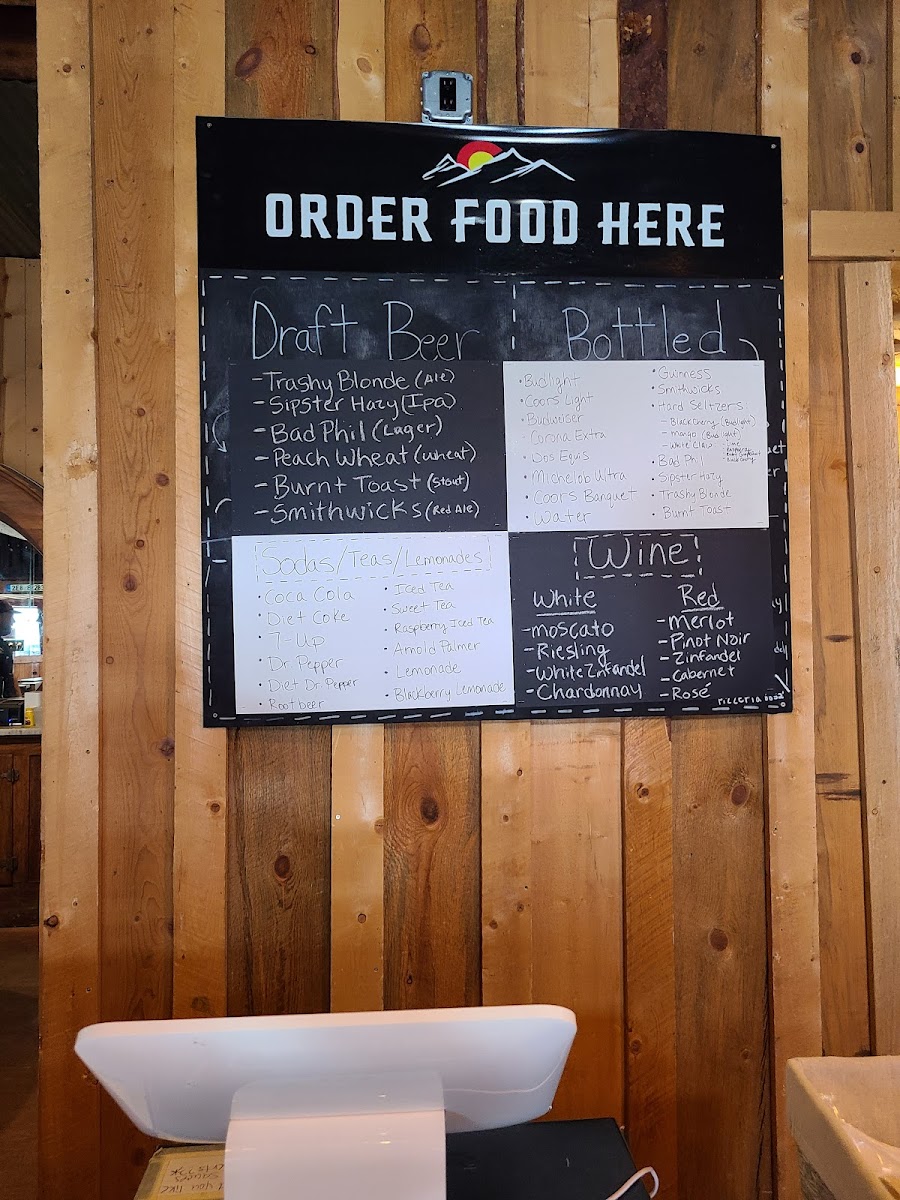 ORDER FOOD HERE
Draft Beer
- Trashy Blonde (Ale)
- Sipster Hazy (Ipa)
- Bad Phil (Lager)
- Peach Wheat (wheat)
- Burnt Toast (Stout)
- Smithwicks (Red Ale)
Bottled
• Budlight
• Coors Light
• Budweiser
• Corona Extra
• Dos Equis
• Michelob Ultra
• Coors Banquet
• Water
• Guinness
• Smithwicks
• Hard Seltzers
- Black Cherry (Budlight)
- Mango (Bud light)
- White Claw
• Bad Phil
• Sipster Hazy
• Trashy Blonde
• Burnt Toast
Sodas/Teas/Lemonades
• Coca Cola
• Diet Coke
• 7-Up
• Dr Pepper
• Diet Dr Pepper
• Rootbeer
• Iced Tea
• Sweet Tea
• Raspberry Iced Tea
• Arnold Palmer
• Lemonade
• Blackberry Lemonade
Wine
White
- Moscato
- Riesling
- White Zinfandel
- Chardonnay
Red
- Merlot
- Pinot Noir
- Zinfandel
- Cabernet
- Rosé